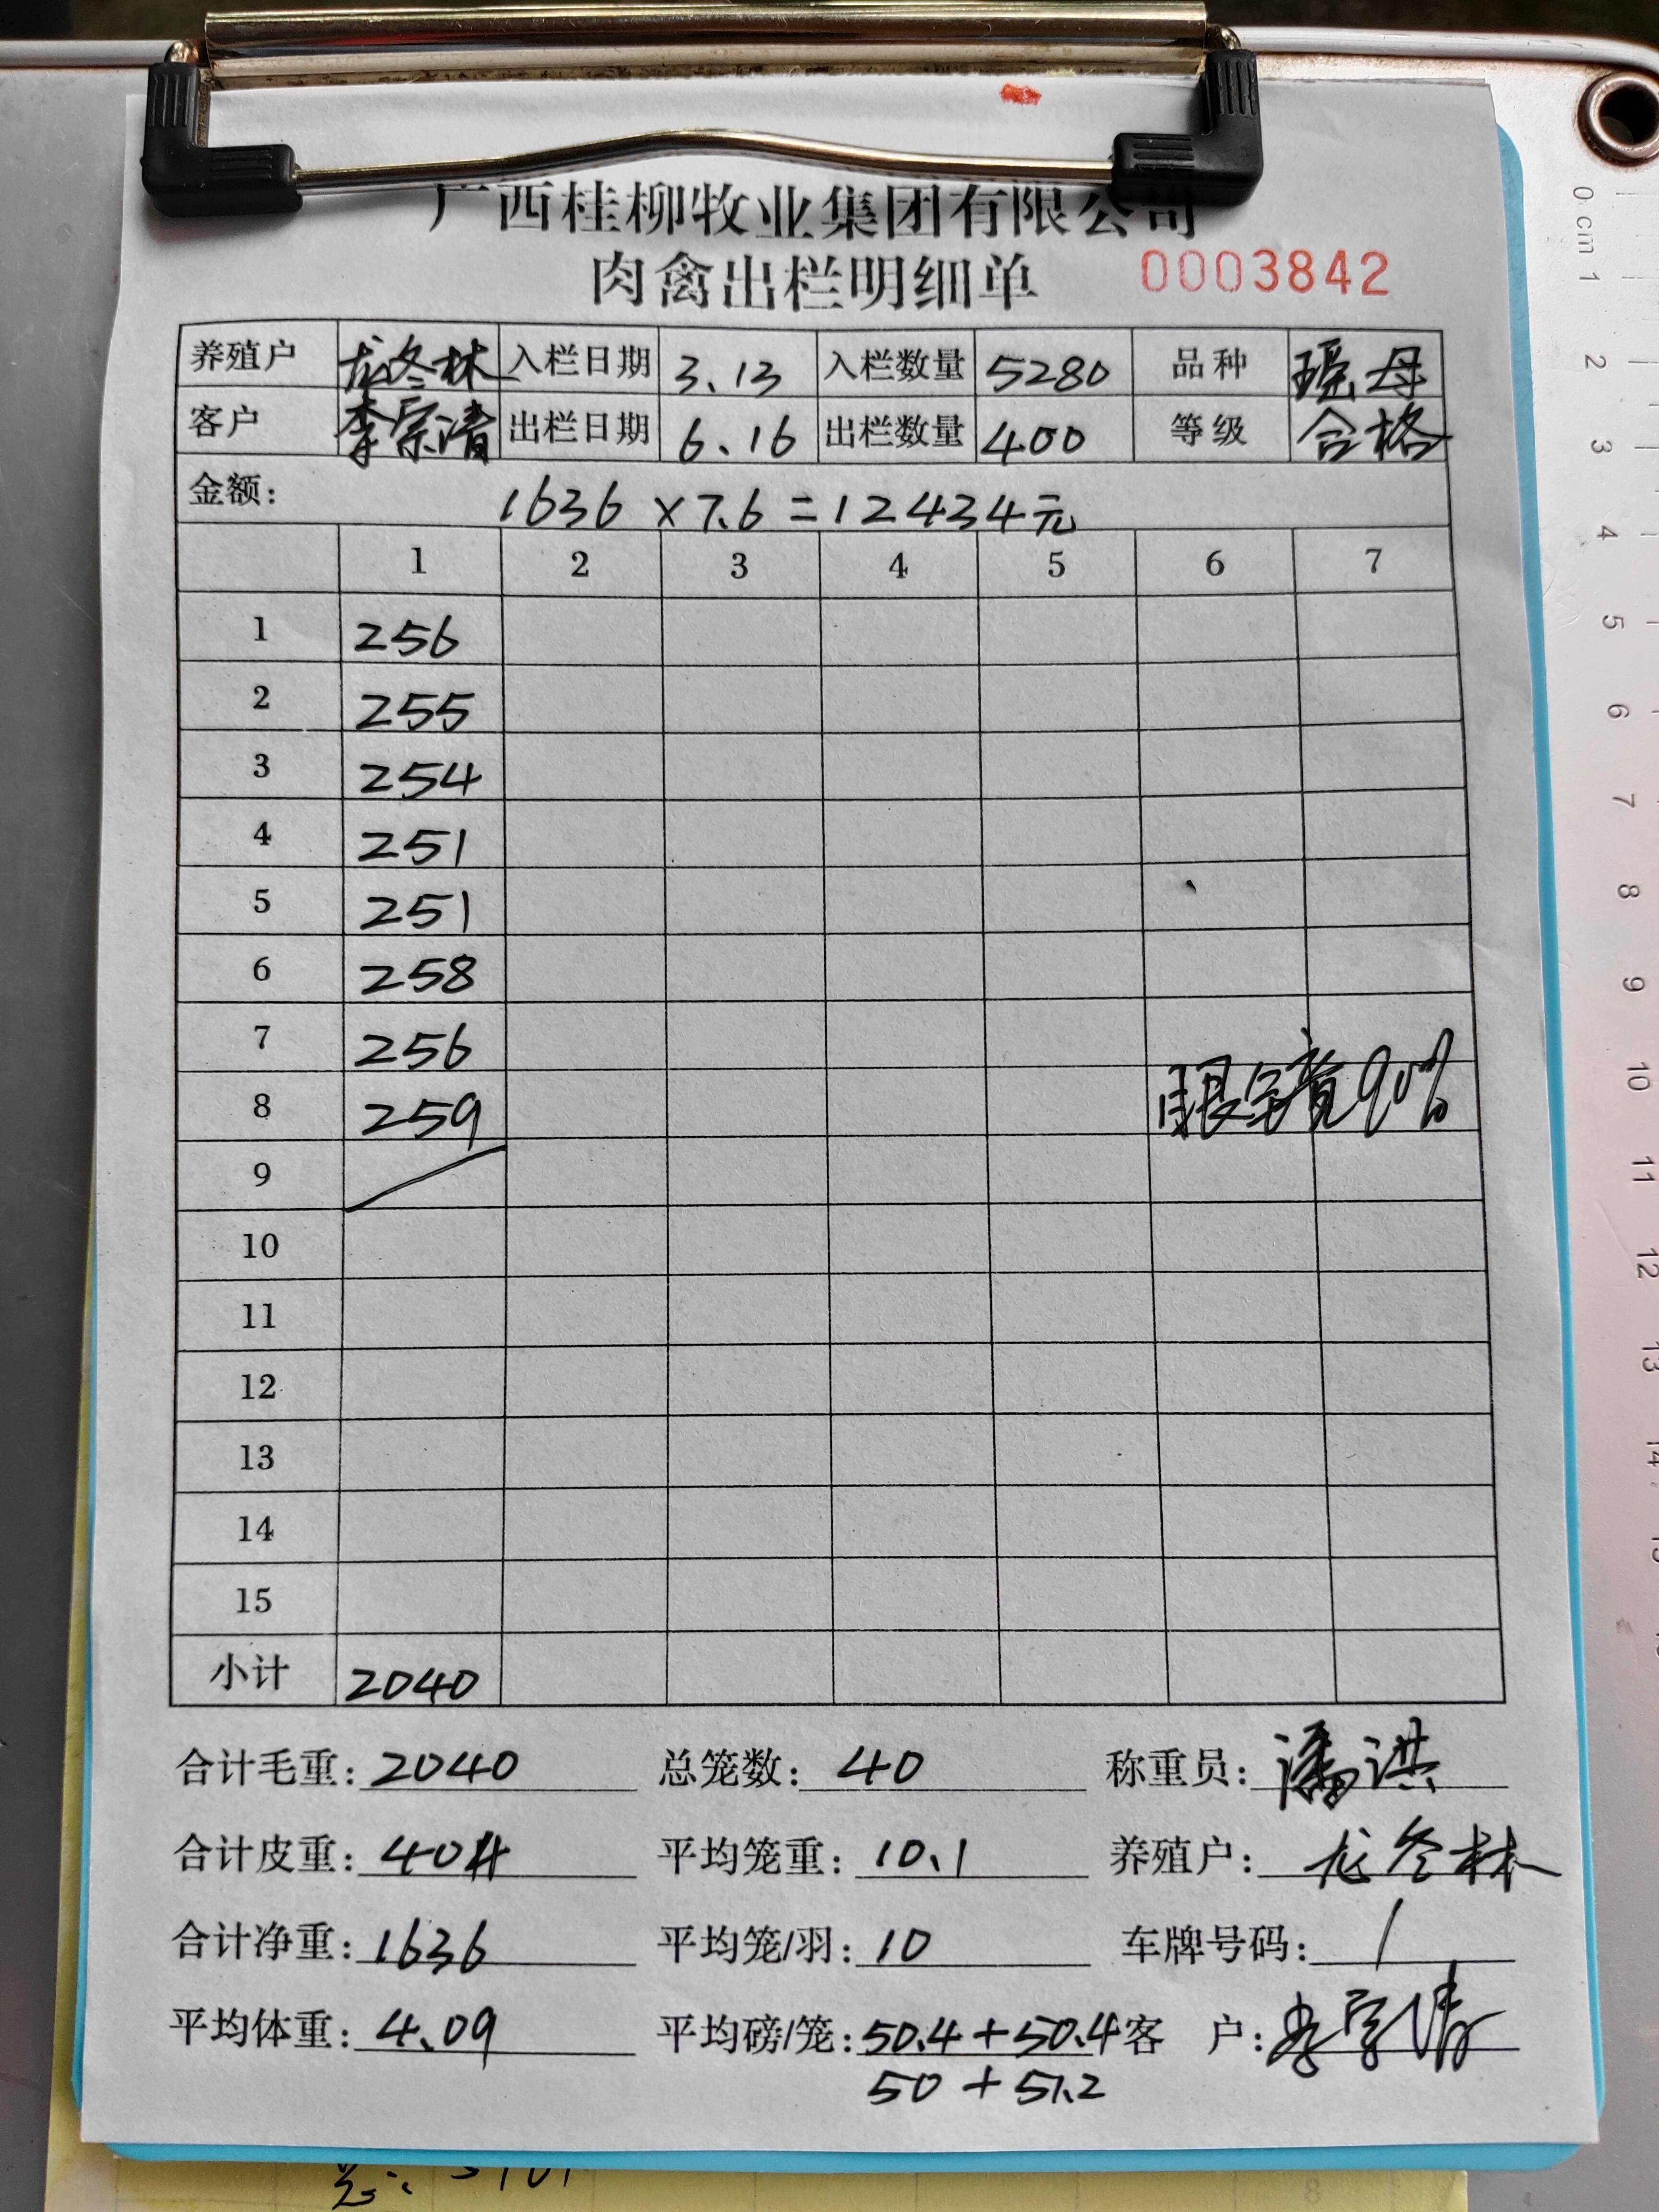 广西桂柳牧业集团有限公司
肉禽出栏明细单 0003842
养殖户 龙冬林 入栏日期 3.13 入栏数量 5280 品种 瑶母
客户 李宗清 出栏日期 6.16 出栏数量 400 等级 合格
金额: 1636 × 7.6 = 12434元
1 2 3 4 5 6 7
1 256
2 255
3 254
4 251
5 251
6 258
7 256
8 259 眼字竟90%
9
10
11
12
13
14
15
小计 2040
合计毛重: 2040 总笼数: 40 称重员: 潘洪
合计皮重: 404 平均笼重: 10.1 养殖户: 龙冬林
合计净重: 1636 平均笼/羽: 10 车牌号码: /
平均体重: 4.09 平均磅/笼: 50.4+50.4 客户: 李宗清
50+51.2
0 cm 1
2
3
4
5
6
7
8
9
10
11
12
13
14